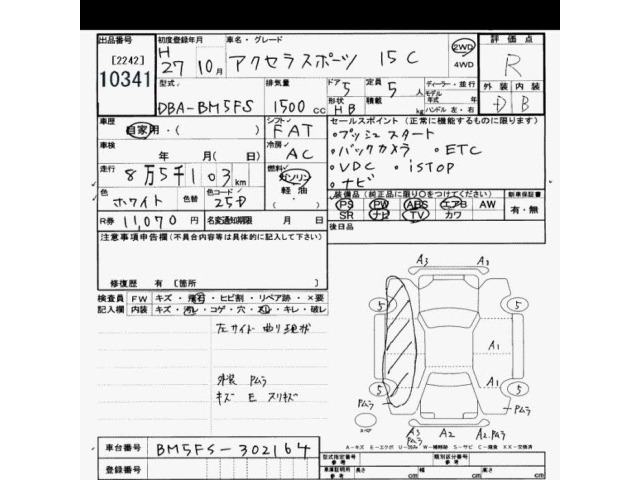 出品番号 初度登録年月 車名・グレード 評価点
[2242] H 27年 10月 アクセラスポーツ 15C 2WD 4WD R
10341 型式 排気量 ドア 5 定員 5人 ディーラー・並行 外装 内装
DBA-BM5FS 1500cc 形状 HB 積載 kg モデル年式 年 ハンドル 左・右 D B
車歴 シフト セールスポイント (正常に機能するものに限ります)
自家用・( ) FAT ・プッシュスタート
車検 冷房 ・バックカメラ ・ETC
年 月(日) AC ・VDC ・iSTOP
走行 8万5千103km 燃料 ガソリン 軽油 ・ナビ
色 ホワイト 色替 色コード 25D 装備品 (純正品に限り○をつけてください) 新車保証書
PS PW ABS エアB AW 有・無
R券 11,070円 名変通知期限 月 日 SR ナビ TV カワ
注意事項申告欄(不具合内容等は具体的に記入して下さい) 後日品
修復歴 有 [箇所
検査員 FW キズ・飛石・ヒビ割・リペア跡・×要
記入欄 内装 キズ・汚レ・コゲ・穴・スレ・キレ・破レ
左サイド曲り現状
外装 Pムラ
キズ E スリキズ
A3 A2
5 5
A1
A1
5 5
Pムラ Pムラ
スペア
A3 Pムラ A2 A2.Pムラ
A-キズ E-エクボ U-凹み W-補修跡 S-サビ C-腐食 XX-交換済
車台番号 BM5FS-302164
型式指定番号 参考 類別区分番号 参考
登録番号 車庫証明用 参考 長さ cm 幅 cm 高さ cm